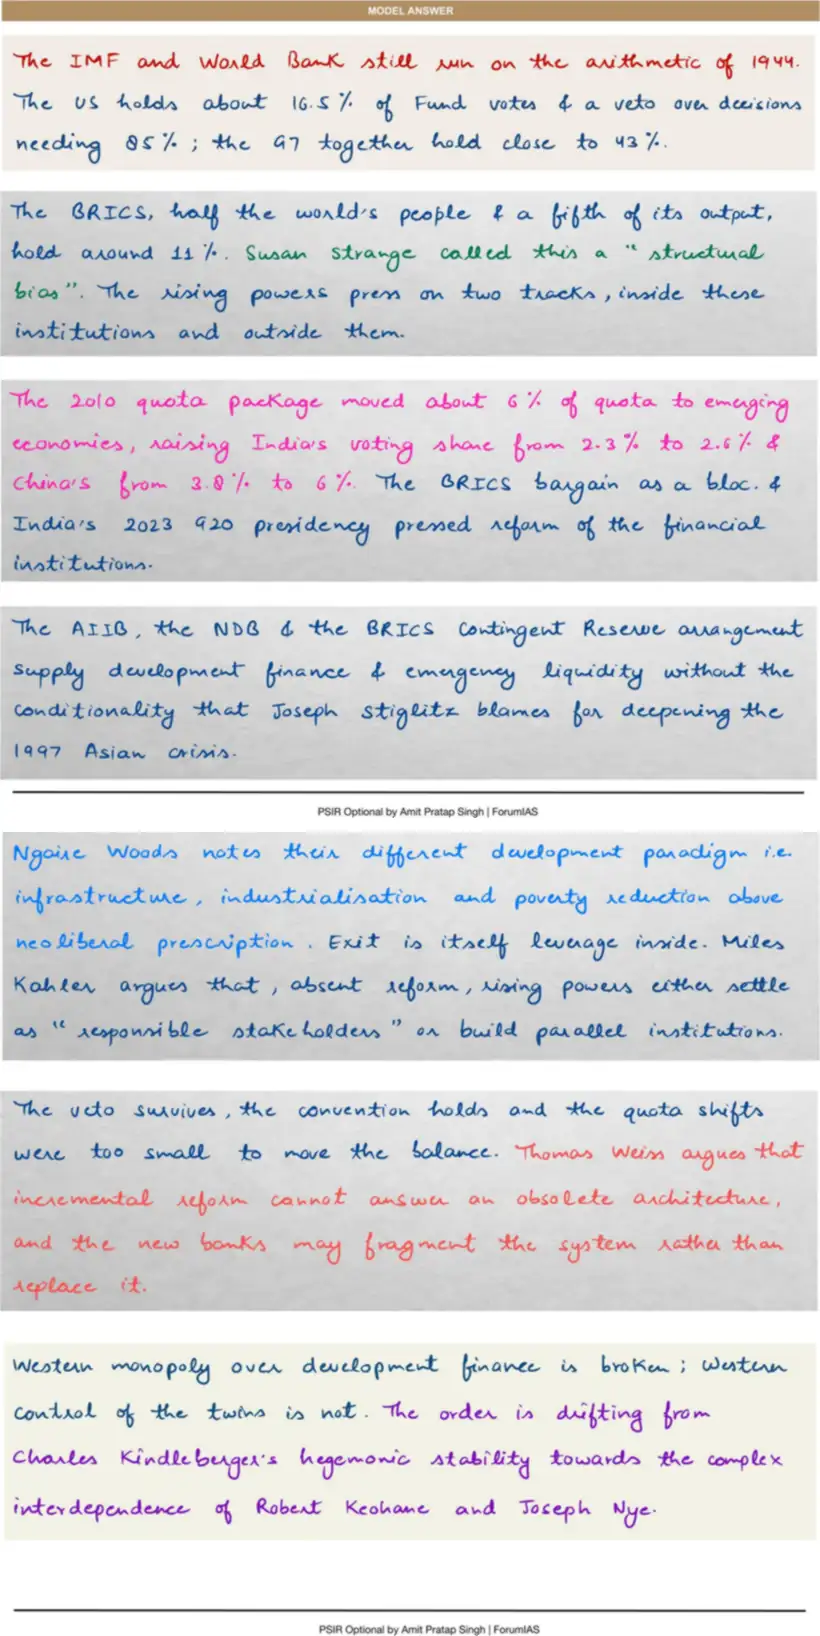 MODEL ANSWER
The IMF and World Bank still run on the arithmetic of 1944.
The US holds about 16.5% of Fund votes & a veto over decisions
needing 85%; the G7 together hold close to 43%.
The BRICS, half the world's people & a fifth of its output,
hold around 11%. Susan Strange called this a "structural
bias". The rising powers press on two tracks, inside these
institutions and outside them.
The 2010 quota package moved about 6% of quota to emerging
economies, raising India's voting share from 2.3% to 2.6% &
China's from 3.8% to 6%. The BRICS bargain as a bloc. &
India's 2023 G20 presidency pressed reform of the financial
institutions.
The AIIB, the NDB & the BRICS Contingent Reserve arrangement
supply development finance & emergency liquidity without the
conditionality that Joseph Stiglitz blames for deepening the
1997 Asian crisis.
PSIR Optional by Amit Pratap Singh | ForumIAS
Ngaire Woods notes their different development paradigm i.e.
infrastructure, industrialisation and poverty reduction above
neoliberal prescription. Exit is itself leverage inside. Miles
Kahler argues that, absent reform, rising powers either settle
as "responsible stakeholders" or build parallel institutions.
The veto survives, the convention holds and the quota shifts
were too small to move the balance. Thomas Weiss argues that
incremental reform cannot answer an obsolete architecture,
and the new banks may fragment the system rather than
replace it.
Western monopoly over development finance is broken; Western
control of the twins is not. The order is drifting from
Charles Kindleberger's hegemonic stability towards the complex
interdependence of Robert Keohane and Joseph Nye.
PSIR Optional by Amit Pratap Singh | ForumIAS